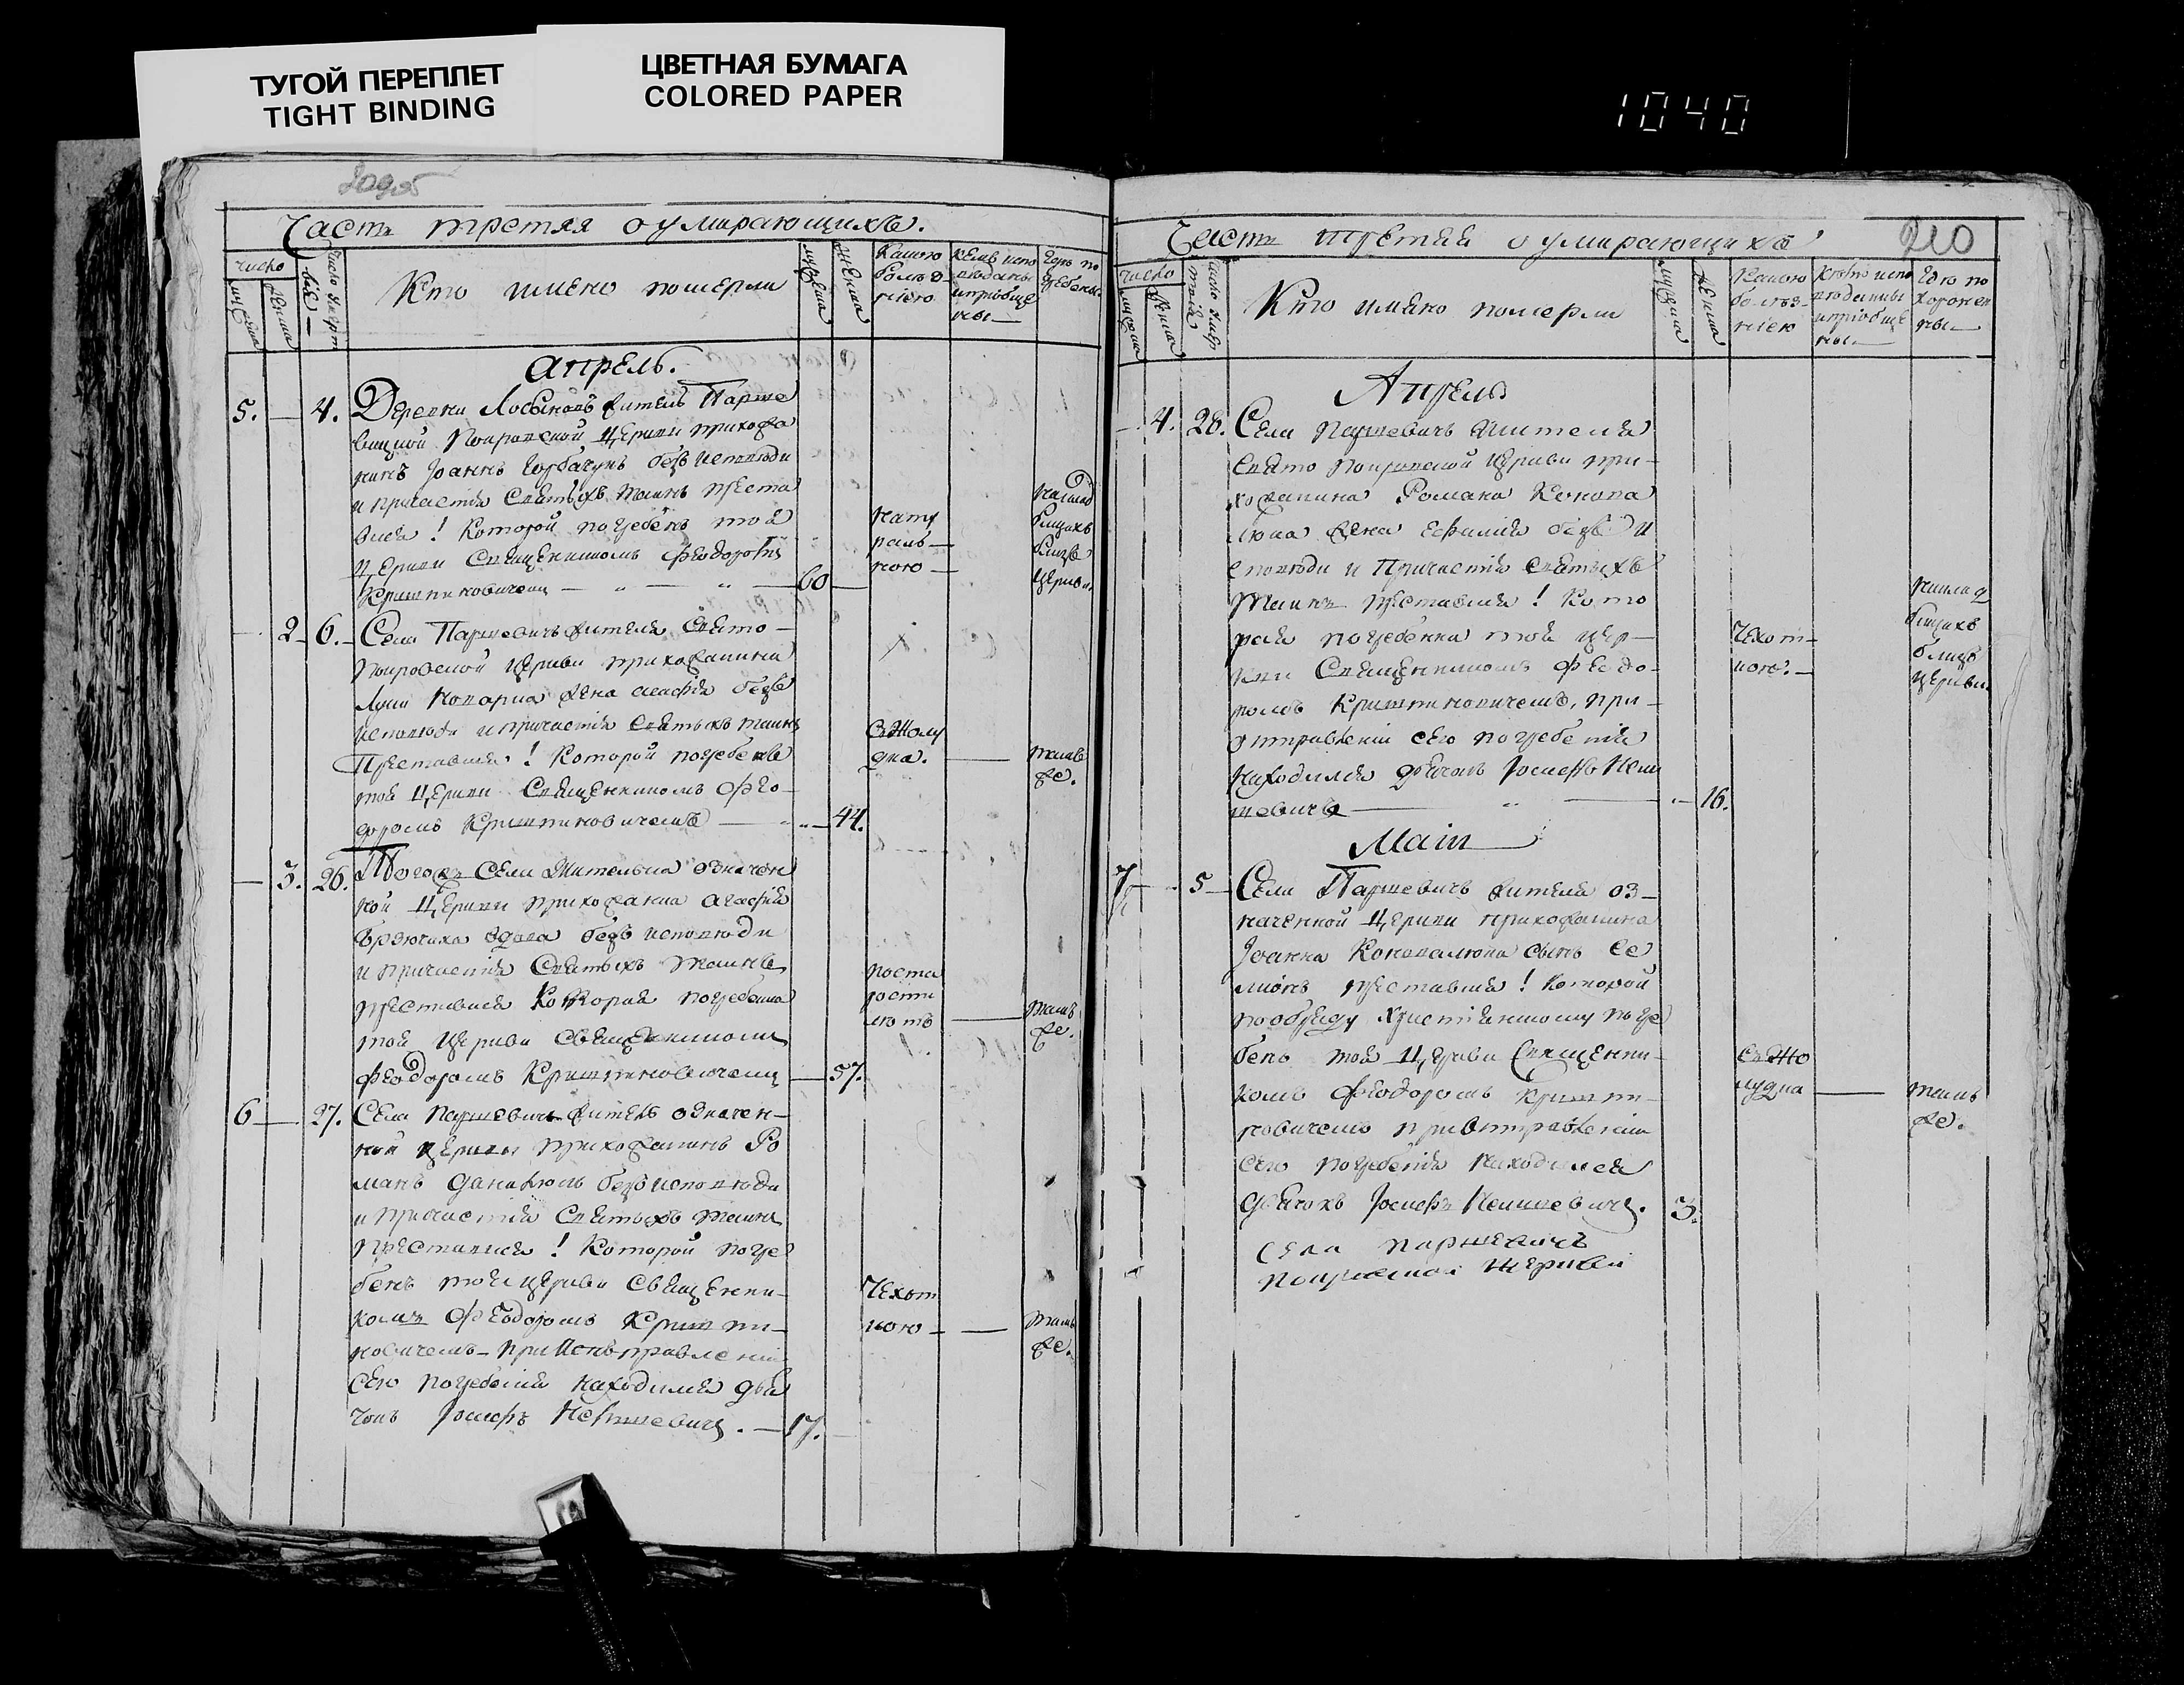 ТУГОЙ ПЕРЕПЛЕТ
TIGHT BINDING
ЦВЕТНАЯ БУМАГА
COLORED PAPER
1040
Часть третяя о умирающихъ.
число
мужеска
женска
Число умерт
вія
Кто имено померли
мужеска
женска
Какою
болѣз
нїею
кемъ испо
вѣданы
и пріобще
ны
Где по
гребены
Апрель.
5. 4. Деревни житель Парше
вицкой Покровской Церкви прихожа
нинъ Іоаннъ Горбачукъ безъ исповѣди
и причастія Святыхъ Таинъ преста
вися! Которой погребенъ той
Церкви Священникомъ Феодоромъ
Криштиновичемъ 60
нату
раль
ною
на клад
бищахъ
близъ
Церкви.
2 6. Села Паршевичъ жителя Свято
Покровской Церкви прихожанина
жена Агафія безъ
исповѣди и причастія Святыхъ таинъ
Преставися! Которой погребенъ
той Церкви Священникомъ Фео
доромъ Криштиновичемъ 44.
Зжолу
дка.
тамъ
же.
3. 26. Тогожъ Села Жителька означен
ной Церкви прихожанка Агафія
вдова безъ исповѣди
и причастія Святыхъ Таинъ
преставися Которая погребена
той Церкви Священникомъ
Феодоромъ Криштиновичемъ 57.
тамъ
же.
6 27. Села Паршевичъ житель означен
ной Церкви прихожанинъ Ро
манъ Данилюкъ безъ исповѣди
и причастія Святыхъ таинъ
Преставися! Которой погре
бенъ той церкви Священни
комъ Феодоромъ Кришти
новичемъ при
сего погребенія находился дья
чокъ Іосифъ 17.
Чехот
кою
тамъ
же.
Часть третяя о умирающихъ
210
число
мужеска
женска
Число умер
твія
Кто имено померли
мужеска
женска
Какою
болѣз
нїею
Кѣмъ испо
вѣданы
и пріобще
ны
Где по
хоронен
ны
Апрель
4. 28. Села Паршевичъ Жителя
Свято Покровской Церкви при
хожанина Романа Конова
люка жена Ефимія безъ И
сповѣди и Причастія Святыхъ
Таинъ преставися! Кото
рая погребенна той цер
кви Священникомъ Феодо
ромъ Криштиновичемъ, при
отправленіи сего погребенія
находился дьячокъ Іосифъ
16.
Чехот
кою.
на клад
бищахъ
близъ
церкви.
Маія
7 5 Села Паршевичъ жителя оз
наченной Церкви прихожанина
Іоанна Коновалюка сынъ Си
міонъ преставися! Которой
по обряду христіянскому погре
бенъ той Церкви Священни
комъ Феодоромъ Кришти
новичемъ при отправленіи
сего погребенія находился
дьячокъ Іосифъ 3.
тамъ
же.
села Паршевичъ
Покровской Церкви